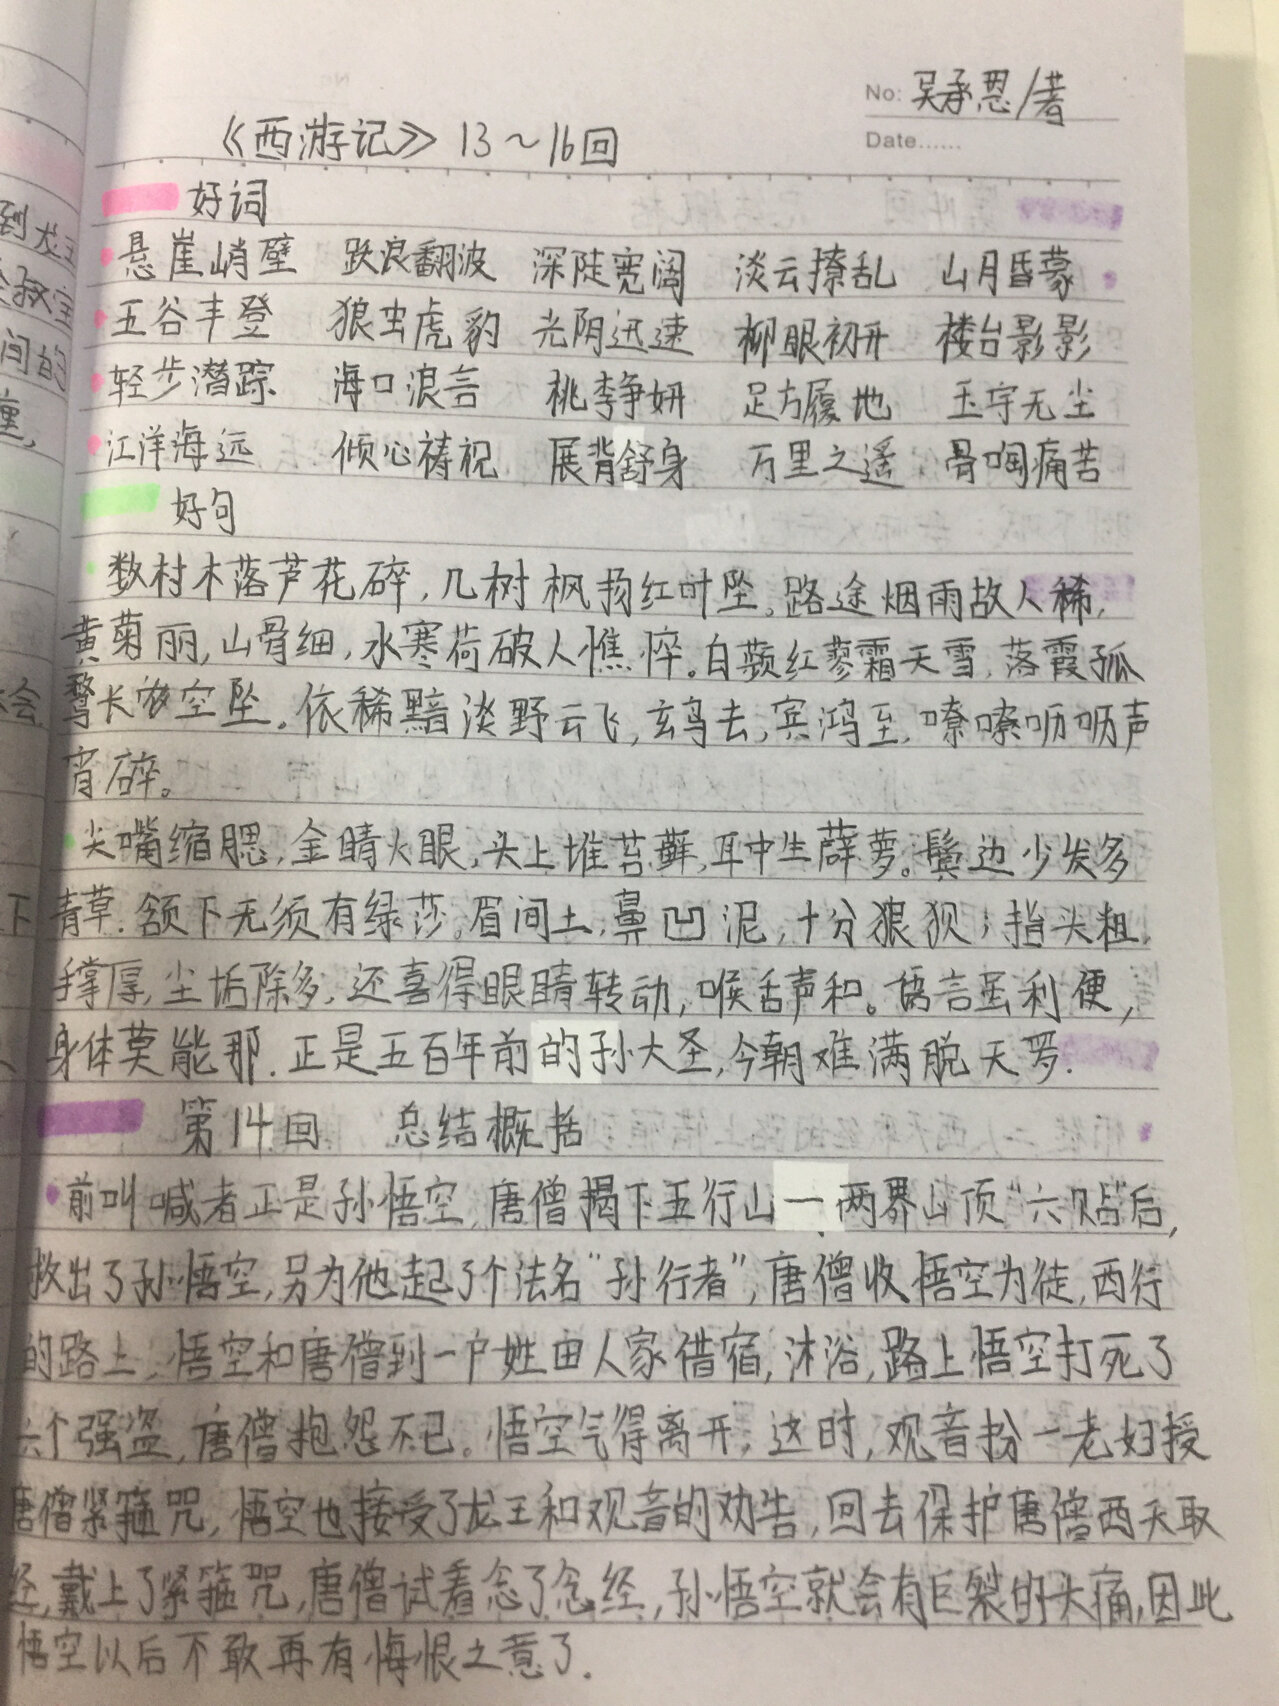 No: 吴承恩/著
Date......
《西游记》13～16回
好词
悬崖峭壁 跃浪翻波 深陡宽阔 淡云撩乱 山月昏蒙
五谷丰登 狼虫虎豹 光阴迅速 柳眼初开 楼台影影
轻步潜踪 海口浪言 桃李争妍 足方履地 玉宇无尘
江洋海远 倾心祷祝 展背舒身 万里之遥 骨啕痛苦
好句
数村木落芦花碎，几树枫扬红叶坠。路途烟雨故人稀，
黄菊丽，山骨细，水寒荷破人憔悴。白蘋红蓼霜天雪，落霞孤
鹜长空坠。依稀黯淡野云飞，玄鸟去，宾鸿至，嘹嘹呖呖声
宵碎。
尖嘴缩腮，金睛火眼，头上堆苔藓，耳中生薜萝。鬓边少发多
青草，颔下无须有绿莎。眉间土，鼻凹泥，十分狼狈；指头粗，
手掌厚，尘垢除多，还喜得眼睛转动，喉舌声和。语言虽利便，
身体莫能那，正是五百年前的孙大圣，今朝难满脱天罗。
第14回 总结概括
前叫喊者正是孙悟空，唐僧揭下五行山一两界山顶“六贴”后，
救出了孙悟空，另为他起了个法名“孙行者”，唐僧收悟空为徒，西行
的路上，悟空和唐僧到一户姓由人家借宿，沐浴，路上悟空打死了
六个强盗，唐僧抱怨不已。悟空气得离开，这时，观音扮一老妇授
唐僧紧箍咒，悟空也接受了龙王和观音的劝告，回去保护唐僧西天取
经，戴上了紧箍咒，唐僧试着念了念经，孙悟空就会有巨裂的头痛，因此
悟空以后不敢再有悔恨之意了.